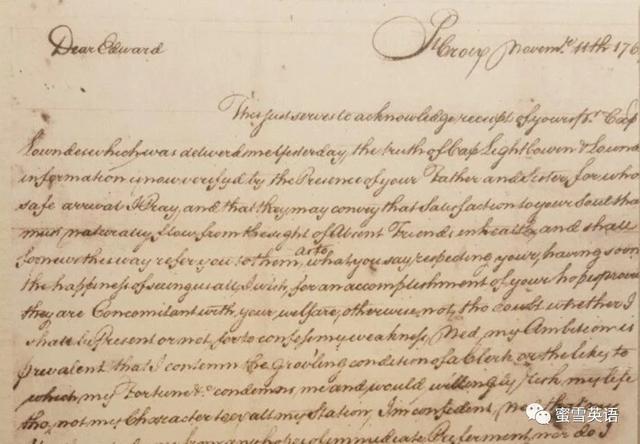 Dear Edward
St Croix Novemr. 11th 176
This just serves to acknowledge receipt of yours pr. Cap
Lowndes which was deliverd me Yesterday, the truth of Cap Lightbowen & Lownd
information is now verifyd by the Presence of your Father and Sister, for who
safe arrival I Pray, and that they may convey that Satisfaction to your Soul tha
must naturally flow from the sight of Absent Friends in health, and shall
for news this way refer you to them, as to what you say respecting your having soon
the happiness of seeing us all, I wish, for an accomplishment of your hopes provi
they are Concomitant with your welfare, otherwise not, tho doubt whether I
shall be Present or not for to confess my weakness, Ned, my Ambition is
prevalent that I contemn the grov'ling condition of a Clerk or the like, to
which my Fortune &c. condemns me and would willingly risk my life
tho' not my Character to exalt my Station, I'm confident, Ned that my
from any hopes of immediate Preferment, nor do I
蜜雪英语